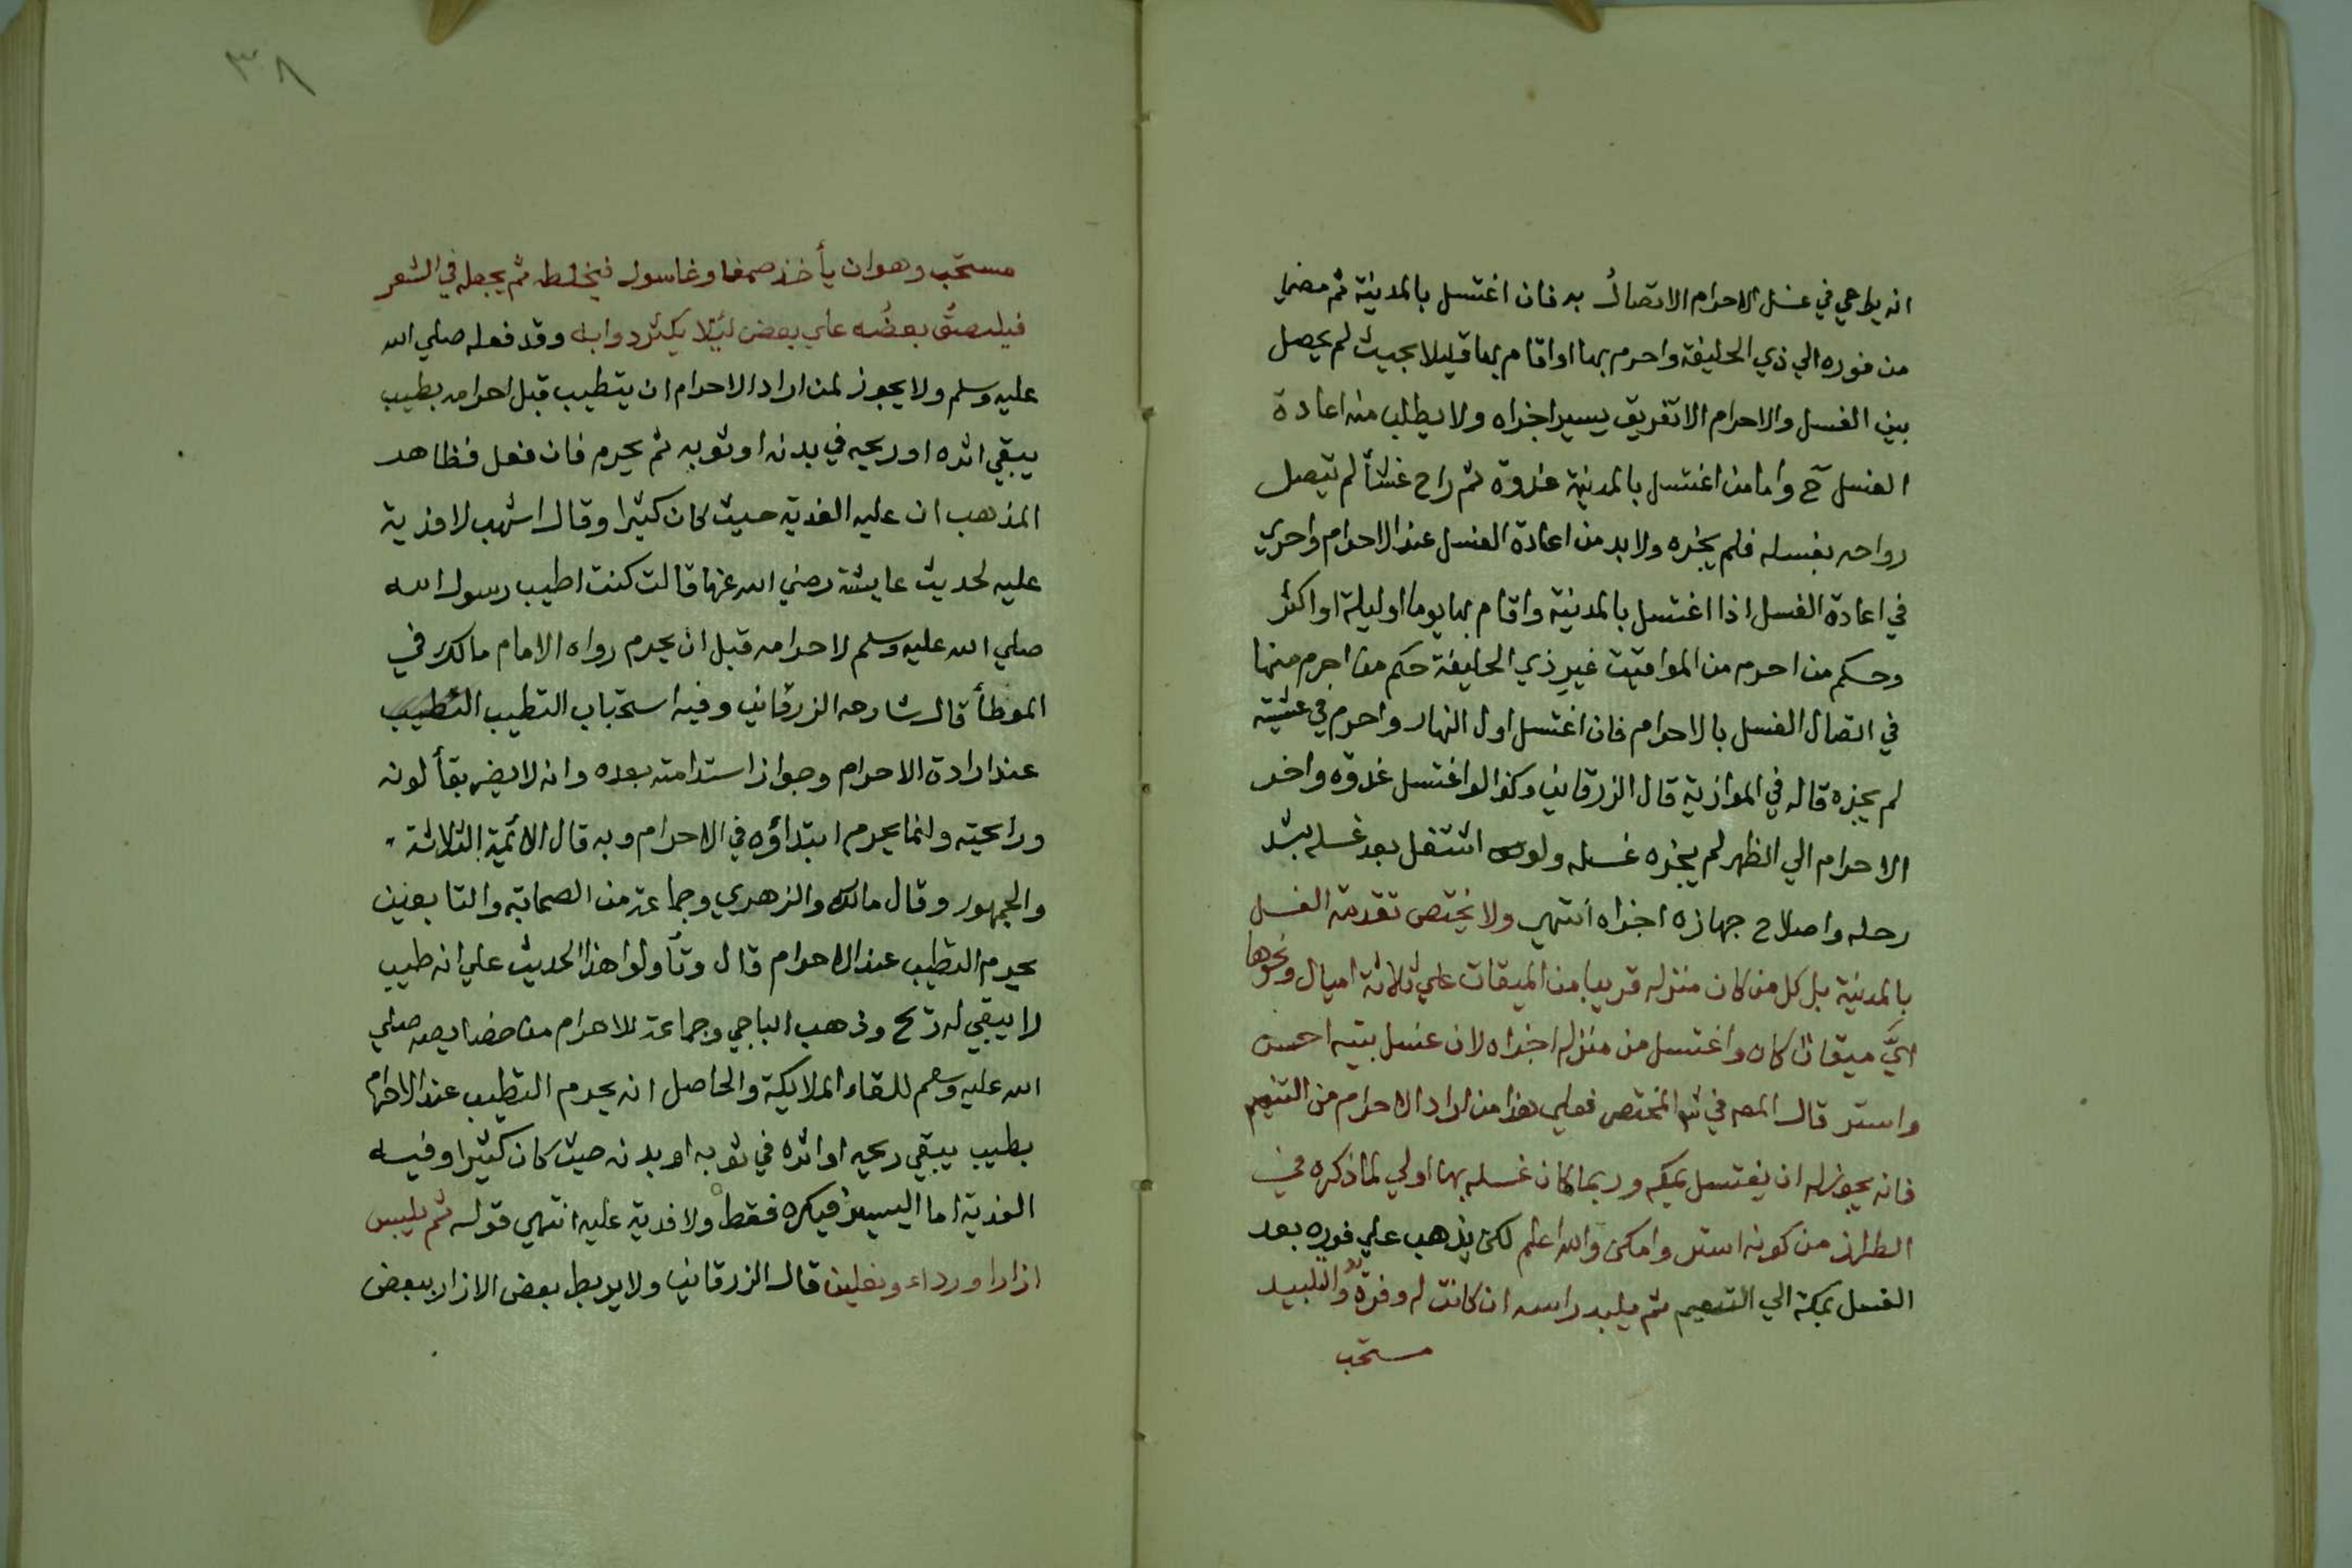 انه يراعي في غسل الاحرام الاتصال به فان اغتسل بالمدينة ثم مضي
من فوره الي ذي الحليفة واحرم بها او اقام بها قليلا بحيث لم يحصل
بين الغسل والاحرام الا تفريق يسير اجزاه ولا يطلب منه اعادة
الغسل ح واما من اغتسل بالمدينة غدوة ثم راح عشا لم تيصل
رواحه بغسله فلم يجزه ولا بد من اعادة الغسل عند الاحرام واحري
في اعادة الغسل اذا اغتسل بالمدينة واقام بها يوما او ليلة او اكثر
وحكم من احرم من المواقيت غير ذي الحليفة حكم من احرم منها
في اتصال الغسل بالاحرام فان اغتسل اول النهار واحرم في عشيته
لم يجزه قاله في الموازية قال الزرقاني وكذا لو اغتسل غدوة واخر
الاحرام الي الظهر لم يجزه غسله ولو اشتغل بعد غسله بشد
رحله واصلاح جهازه اجزاه انتهي ولا يختص تقدمة الغسل
بالمدينة بل كل من كان منزله قريبا من الميقات علي ثلاثة اميال ونحوها
ايَّ ميقات كان واغتسل من منزله اجزاه لان غسل بيته احسن
واستر قال المص في ش المختصر فعلي هذا من اراد الاحرام من التنعيم
فانه يجوز له ان يغتسل بمكة وربما كان غسله بها اولي لما ذكره في
الطراز من كونه استر وامكن والله اعلم لكن يذهب علي فوره بعد
الغسل بمكة الي التنعيم ثم يلبد راسه ان كانت له وفرة والتلبيد
مستحب
٣٨
مستحب وهو ان يأخذ صمغا وغاسول فيخلطه ثم يجعله في الشعر
فيلصق بعضُه علي بعض لئلا يكثر دوابه وقد فعله صلي الله
عليه وسلم ولا يجوز لمن اراد الاحرام ان يتطيب قبل احرامه بطيب
يبقي اثره او ريحه في بدنه او ثوبه ثم يحرم فان فعل فظاهر
المذهب ان عليه الفدية حيث كان كثيرا وقال اشهب لا فدية
عليه لحديث عايشة رضي الله عنها قالت كنت اطيب رسول الله
صلي الله عليه وسلم لاحرامه قبل ان يحرم رواه الامام مالك في
الموطأ قال شارحه الزرقاني وفيه استحباب التطيب التطيب
عند ارادة الاحرام وجواز استدامته بعده وانه لا يضر بقأ لونه
ورايحته وانما يحرم ابتداؤه في الاحرام وبه قال الائمة الثلاثة
والجمهور وقال مالك والزهري وجماعة من الصحابة والتابعين
يحرم التطيب عند الاحرام قال وتأولوا هذا الحديث علي انه طيب
لا يبقي له رتح وذهب الباجي وجماعة للاحرام من خصايصه صلي
الله عليه وسم للقاء الملايكة والحاصل انه يحرم التطيب عند الاحرام
بطيب يبقي ريحه او اثره في ثوبه او بدنه حيث كان كثيرا وفيه
الفدية اما اليسير فيكره فقط ولا فدية عليه انتهي قوله ثم يلبس
ازارا ورداء ونعلين قال الزرقاني ولا يربط بعض الازار ببعض